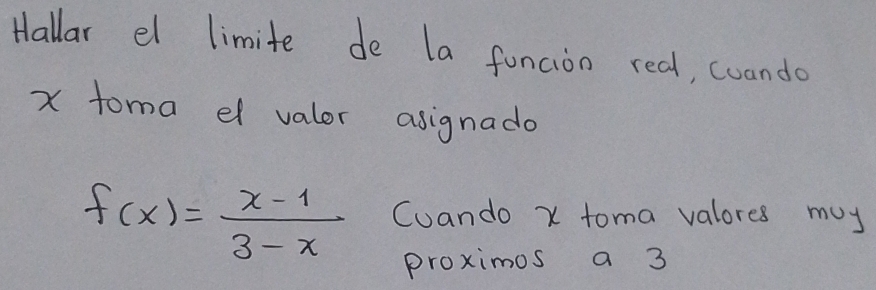 Hallar el limite de la función real, cuando
x toma el valor asignado
f(x) = \frac{x-1}{3-x} Cuando x toma valores muy
proximos a 3